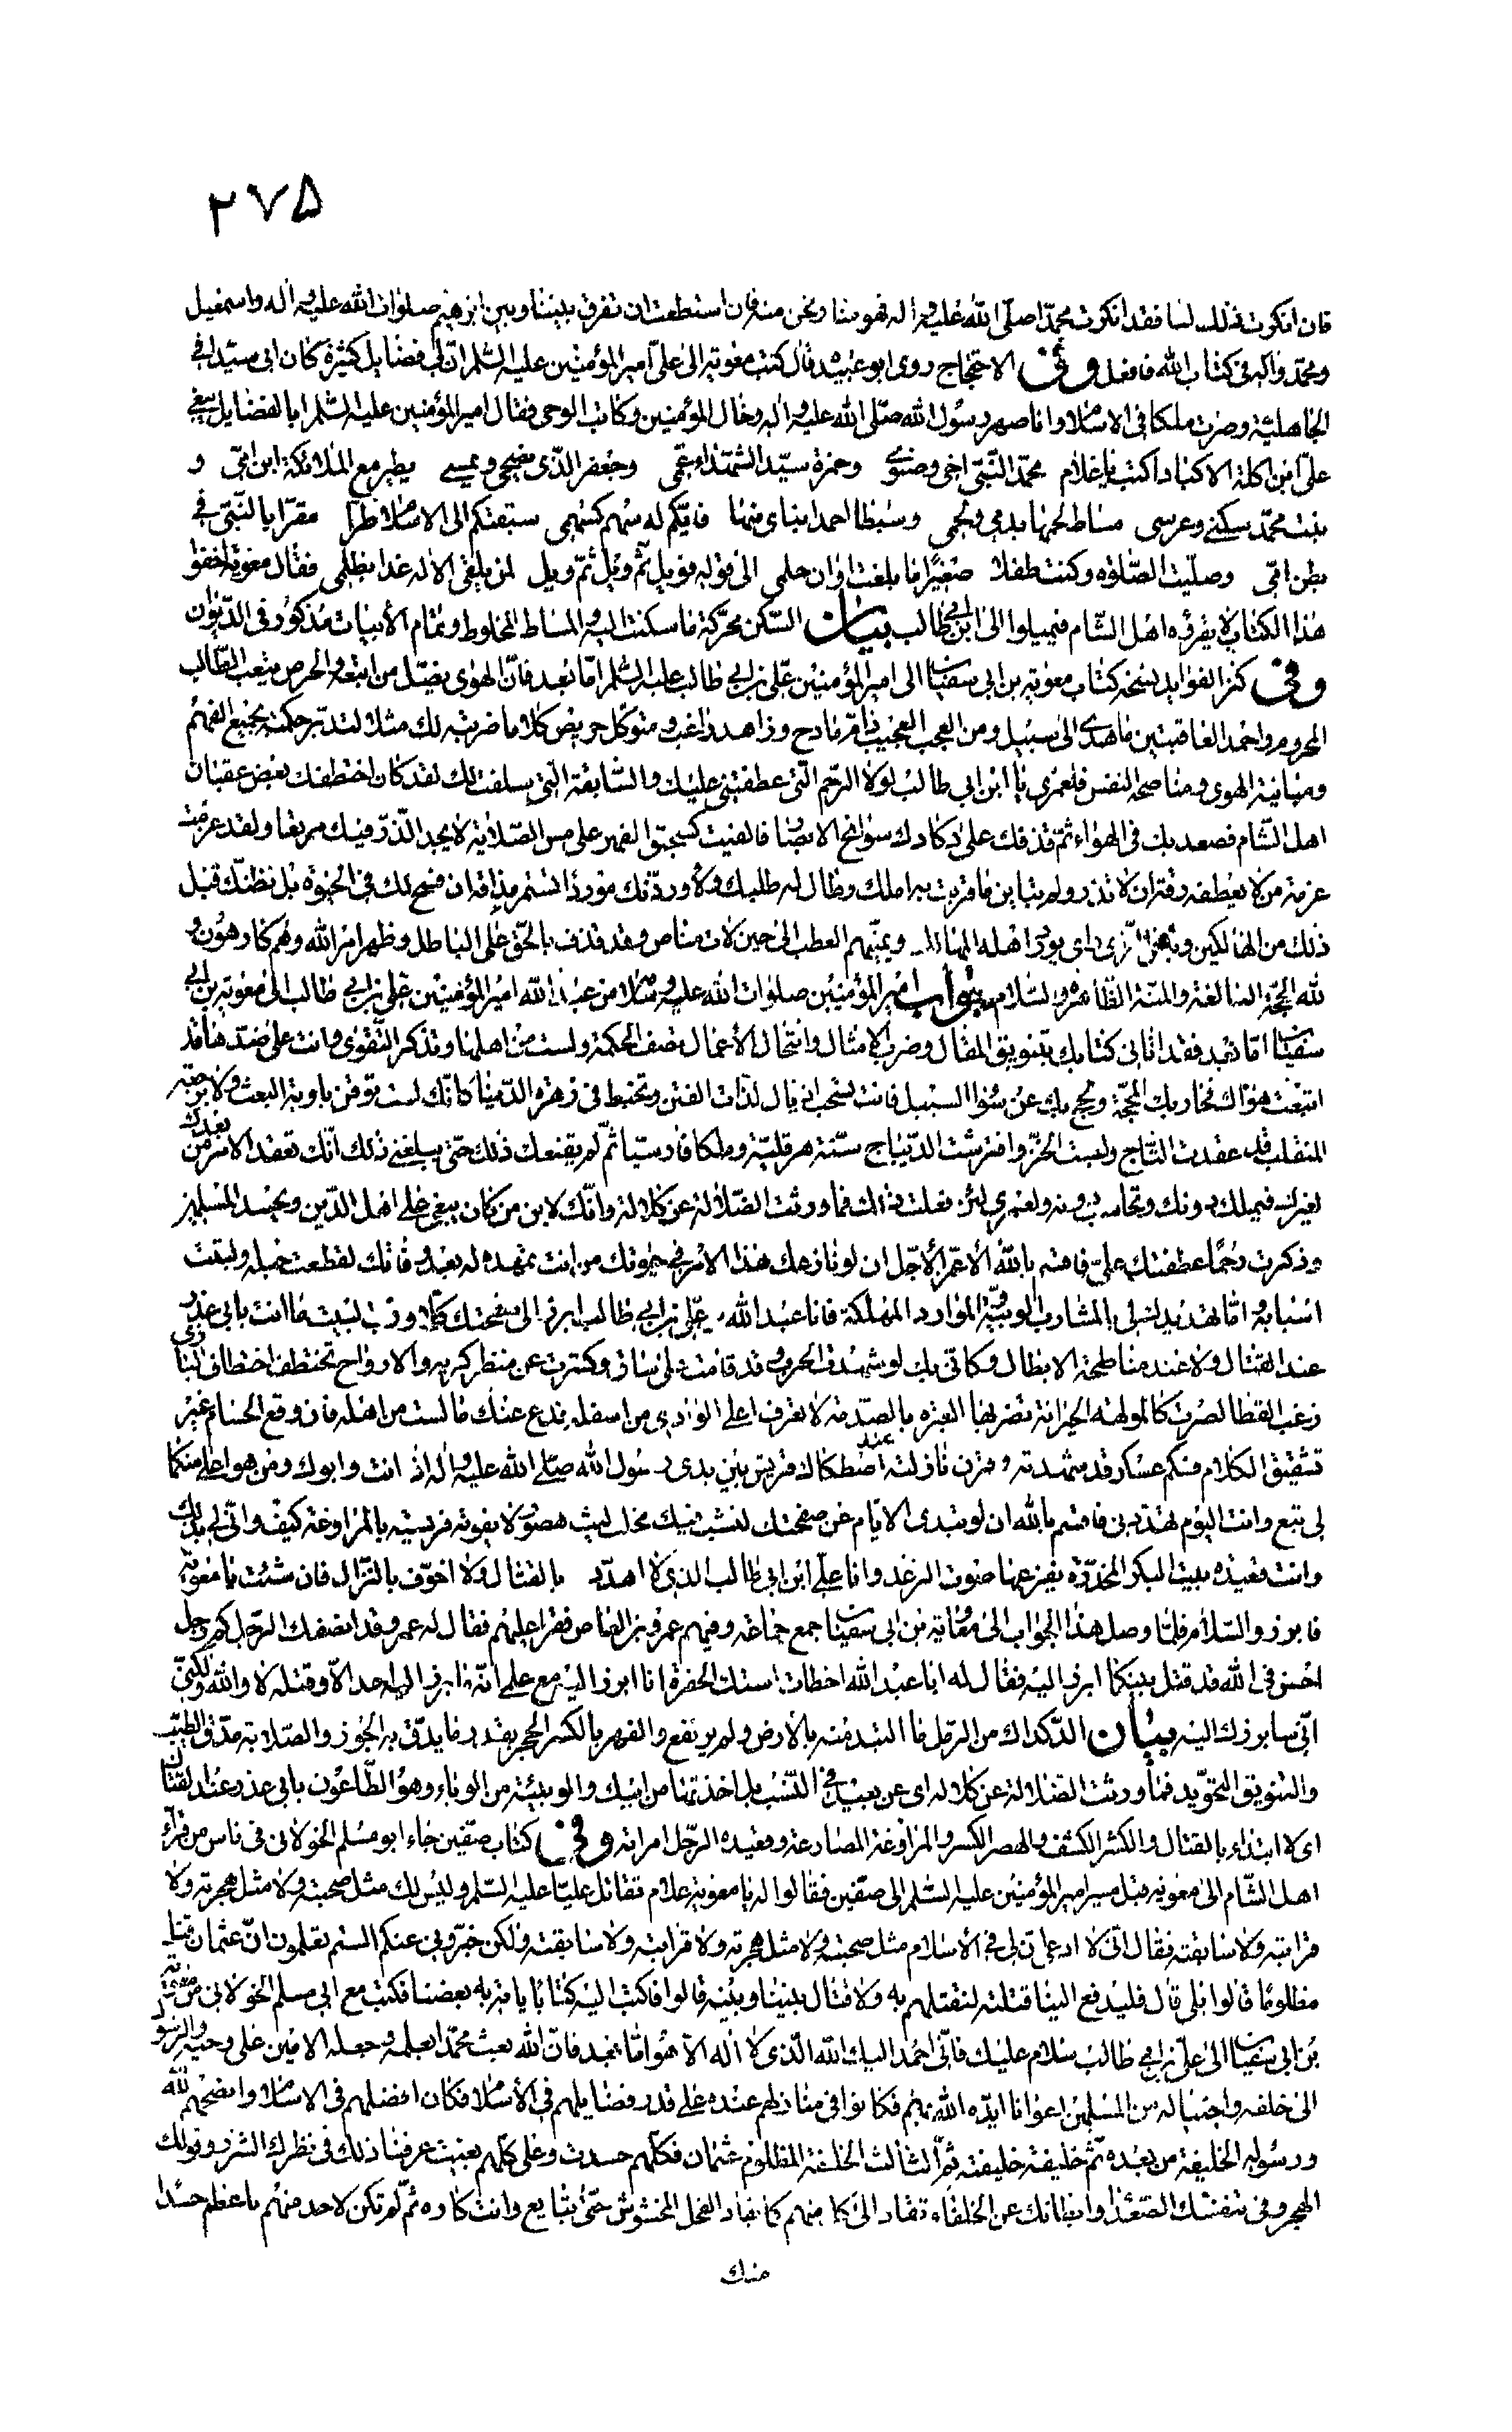 ٢٧٥
فان انكرت ذلك لنا فقد انكرت محمّدا صلّى الله عليه وآله فهو منا ونحن منه فان استطعت ان تفرق بيننا وبين ابرهيم صلوات الله عليه وآله واسمعيل
ومحمّد وآله في كتاب الله فافعل وفى الاحتجاج روى ابو عبيده قال كتب معوية الى علىّ امير المؤمنين عليه السّلم انّ لي فضايل كثيرة كان ابي سيّدا في
الجاهليّة وصرت ملكا في الاسلام وانا صهر رسول الله صلّى الله عليه وآله وخال المؤمنين وكاتب الوحى فقال امير المؤمنين عليه السّلم ابالفضايل يبغي
علىّ ابن اكلة الاكباد اكتب يا غلام محمّد النّبى اخى وصنوى وحمزة سيّد الشهداء عمّى وجعفر الذّى يضحى ويمسى يطير مع الملائكة ابن امّى و
بنت محمّد سكنى وعرسى مساط لحمها بدمى ولحمى وسبطا احمد ابناى منها فايّكم له سهم كسهمى سبقتكم الى الاسلام طرّا مقرّا بالنّبىّ في
بطن امّى وصلّيت الصّلوة وكنت طفلا صغيرا ما بلغت اوان حلمى الى قوله فويل ثمّ ويل ثمّ ويل لمن يلقى الاله غدا بظلمى فقال معوية اخفوا
هذا الكتاب لا يقرؤه اهل الشّام فيميلوا الى ابن ابي طالب بيان السّكن محرّكة ما سكنت اليه والمساط المخلوط وتمام الأبيات مذكور في الدّيوان
وفى كنز الفوايد نسخه كتاب معوية بن ابي سفيان الى امير المؤمنين علىّ بن ابي طالب عليه السّلم امّا بعد فانّ الهوى يضلّ من اتبعه والحرص يتعب الطّالب
المحروم واحمد العاقبتين ما هدى الى سبيل ومن العجب العجيب ذامّ مادح وزاهد راغب ومتوكّل حريص كلاما ضربته لك مثلا لتدبّر حكمته بجميع الفهم
ومباينة الهوى ومناصحه النفس فلعمري يا ابن ابي طالب لولا الرّحم الّتي عطفتنى عليك والسّابقة الّتي سلفت لك لقد كان اختطفك بعض عقبان
اهل الشّام فصعد بك في الهواء ثمّ قذفك على دكادك شوامخ الابصار فالفيت كسحيق الفهر على مسّ الصّلاية لا يجد الذّر فيك مرتعا ولقد عزمت
عزمة من لا يعطفه رقة ان لا تذر ولم تباين ما قربت به املك وطال له طلبك ولأوردنّك موردا تستمر مذاقه ان فسح لك في الحيوة بل نظنّك قبل
ذلك من الهالكين وبئس الرّاى راى يورد اهله المهالك ويمنّيهم العطب الى حين لات مناص وقد قذف بالحقّ على الباطل وظهر امر الله وهم كارهون و
لله الحجّة البالغة والمنّة الظّاهرة والسّلام جواب امير المؤمنين صلوات الله عليه وسلامه من عبد الله امير المؤمنين علىّ بن ابي طالب الى معوية بن ابي
سفيان امّا بعد فقد اتاني كتابك بتنويق المقال وضرب الامثال وانتحال الأعمال تصف الحكمة ولست من اهلها وتذكر التّقوى وانت على ضدّها قد
اتبعت هواك فحاد بك عن المحجّة ولحج بك عن سواء السبيل فانت تسحب اذيال لذّات الفتن وتخبط في زهرة الدّنيا كانّك لست توقن باوبة البعث ولا برجعة
المنقلب قد عقدت التاج ولبست الخزّ وافترشت الدّيباج سنّة هرقليّة وملكا فارسيّا ثمّ لم يقنعك ذلك حتّى يبلغني ذلك انّك تعقد الامر من بعدك
لغيرك فيملك دونك وتحاسب دونه ولعمري لئن فعلت ذلك فما ورثت الضّلالة عن كلالة وانّك لابن من كان يبغى على اهل الدّين ويحسد المسلمين
وذكرت رحما عطفتك علىّ فاقسم بالله الأعزّ الأجلّ ان لو نازعك هذا الأمر في حيوتك من انت تمهده له بعد وفاتك لقطعت حبله ولبتتت
اسبابه وامّا تهديدك لي بالمشارب الوبيّة والموارد المهلكة فانا عبد الله علىّ بن ابي طالب ابرز الى صفحتك كلّا وربّ البيت ما انت بابي عذر
عند القتال ولا عند مناطحة الابطال وكانّي بك لو شهدت الحرب وقد قامت على ساق وكشرت عن منظر كريه والارواح تختطف اختطاف البازى
زغب القطا لصرت كالمولهة الحيرانة تضربها العبرة بالصّدمة لا تعرف اعلى الوادى من اسفله فدع عنك ما لست من اهله فان وقع الحسام غير
تشقيق الكلام فكم عسكر قد شهدته وقرن نازلته اصطكاك قريش بين يدى رسول الله صلّى الله عليه وآله اذ انت وابوك ومن هو اعلى منكما
عند
لي تبع وانت اليوم تهدّدني فاقسم بالله ان لو تبدى الايّام عن صفحتك لنشب فيك مخلب ليث هصور لا يفوته فريسته بالمراوغة كيف وانّى لك بذلك
وانت قعيدة بيت البكر المخدّرة يفزعها صوت الرعد وانا علىّ ابن ابي طالب الذى لا اهدّد بالقتال ولا اخوّف بالنّزال فان شئت يا معوية
فابرز والسّلام فلمّا وصل هذا الجواب الى معوية بن ابي سفيان جمع جماعة وفيهم عمرو بن العاص فقرا عليهم فقال له عمرو قد انصفك الرّجل كم رجل
احسن في الله قد قتل بينكما ابرز اليه فقال له ابا عبد الله اخطات استك الحفرة انا ابرز اليه مع علمي انّه ما برز اليه احد الّا وقتله لا والله ولكنّي
انّي سابرزك اليه بيان الدّكداك من الرّمل ما التبد منه بالأرض ولم يرتفع والفهر بالكسر الحجر بقدر ما يدقّ به الجوز والصّلاية مدقّ الطيب
والتنويق التجويد فما ورثت الضّلالة عن كلالة اى عن بعيد في النّسب بل اخذتها من ابيك والوبيئة من الوباء وهو الطّاعون بابي عذر عند القتال
اى لا ابتداء بالقتال والكشر الكشف والهصر الكسر والمراوغة المصارعة وقعيدة الرّجل امراته وفى كتاب صفّين جاء ابو مسلم الخولاني في ناس من قرآء
اهل الشّام الى معوية قبل مسير امير المؤمنين عليه السّلم الى صفّين فقالوا له يا معوية علام تقاتل عليّا عليه السّلم وليس لك مثل صحبته ولا مثل هجرته ولا
قرابته ولا سابقته فقال انّي لا ادعى انّ لي في الأسلام مثل صحبته ولا مثل هجرته ولا قرابته ولا سابقته ولكن خبّروني عنكم الستم تعلمون انّ عثمان قتل
مظلوما قالوا بلى قال فليدفع الينا قتلته لنقتلهم به ولا قتال بيننا وبينه قالوا فاكتب اليه كتابا ياتيه به بعضنا فكتب مع ابي مسلم الخولاني من معوية
بن ابي سفيان الى علىّ بن ابي طالب سلام عليك فانّي احمد اليك الله الّذى لا اله الّا هو امّا بعد فانّ الله بعث محمّدا بعلمه وجعله الامين على وحيه والرسول
الى خلقه واجتبا له من المسلمين اعوانا ايّده الله بهم فكانوا في منازلهم عنده على قدر فضايلهم في الأسلام فكان افضلهم في الاسلام وانصحهم لله
ورسوله الخليفة من بعده ثمّ خليفة خليفته ثمّ الثالث الخليفة المظلوم عثمان فكلّهم حسدت وعلى كلّهم بغيت عرفنا ذلك في نظرك الشزر وقولك
الهجر وفي تنفسك الصّعداء وابطائك عن الخلفاء تقاد الى كل منهم كما يقاد الفحل المخشوش حتّى تبايع وانت كاره ثمّ لم تكن لاحد منهم باعظم حسدا
منك